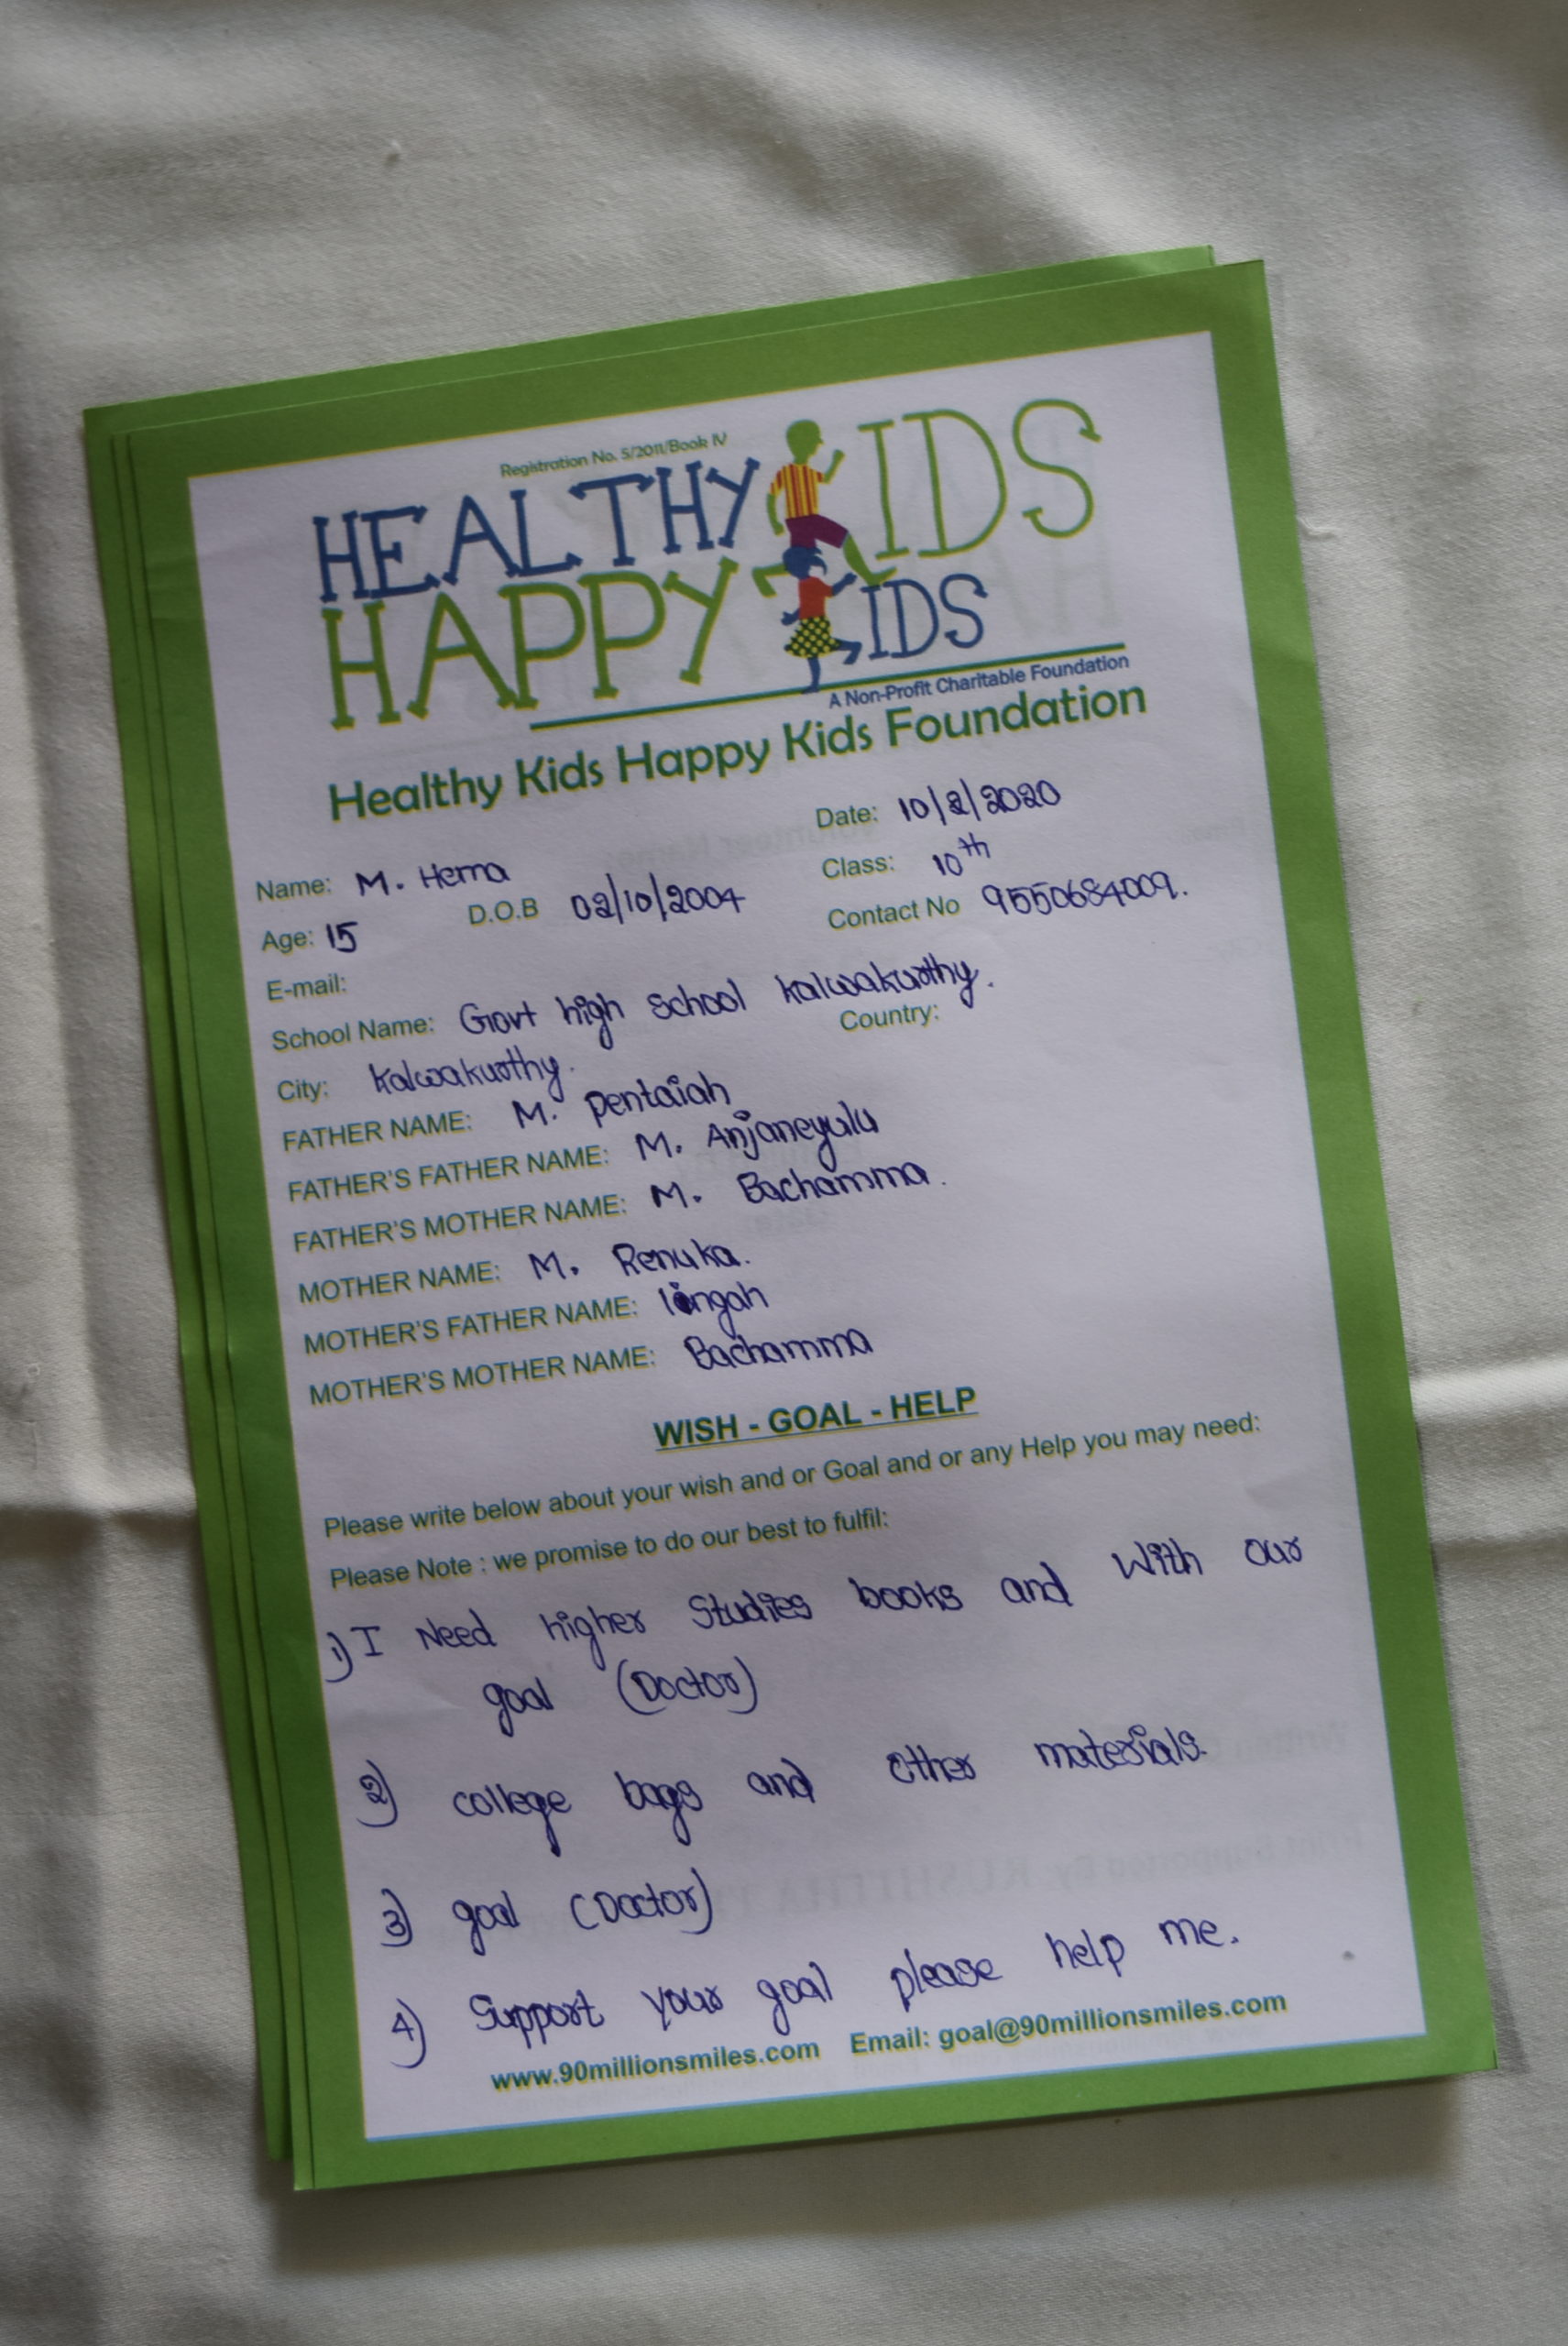 Registration No. 5/2011/Book IV
HEALTHY KIDS
HAPPY KIDS
A Non-Profit Charitable Foundation
Healthy Kids Happy Kids Foundation
Date: 10/2/2020
Name: M. Hema Class: 10th
Age: 15 D.O.B 02/10/2004 Contact No 9550684009.
E-mail:
School Name: Govt high school kalwakurthy.
City: Kalwakurthy. Country:
FATHER NAME: M. pentaiah
FATHER'S FATHER NAME: M. Anjaneyulu
FATHER'S MOTHER NAME: M. Bachamma.
MOTHER NAME: M. Renuka.
MOTHER'S FATHER NAME:
MOTHER'S MOTHER NAME: Bachamma
WISH - GOAL - HELP
Please write below about your wish and or Goal and or any Help you may need:
Please Note : we promise to do our best to fulfil:
1) I Need higher Studies books and With our
goal (Doctor)
2) college bags and other materials.
3) goal (Doctor)
4) Support your goal please help me.
www.90millionsmiles.com Email: goal@90millionsmiles.com